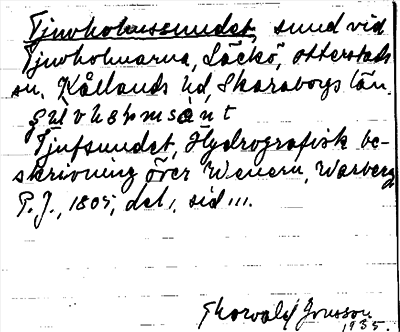 Tjuvholmssundet, sund vid
Tjuvholmarna, Läckö, Otterstads
sn, Kållands hd, Skaraborgs län.
Tjufsundet, Hydrografisk be-
skrivning över Wenern, Warberg,
P. J., 1805, del 1, sid 111.
Thorvald Jonsson
1935.